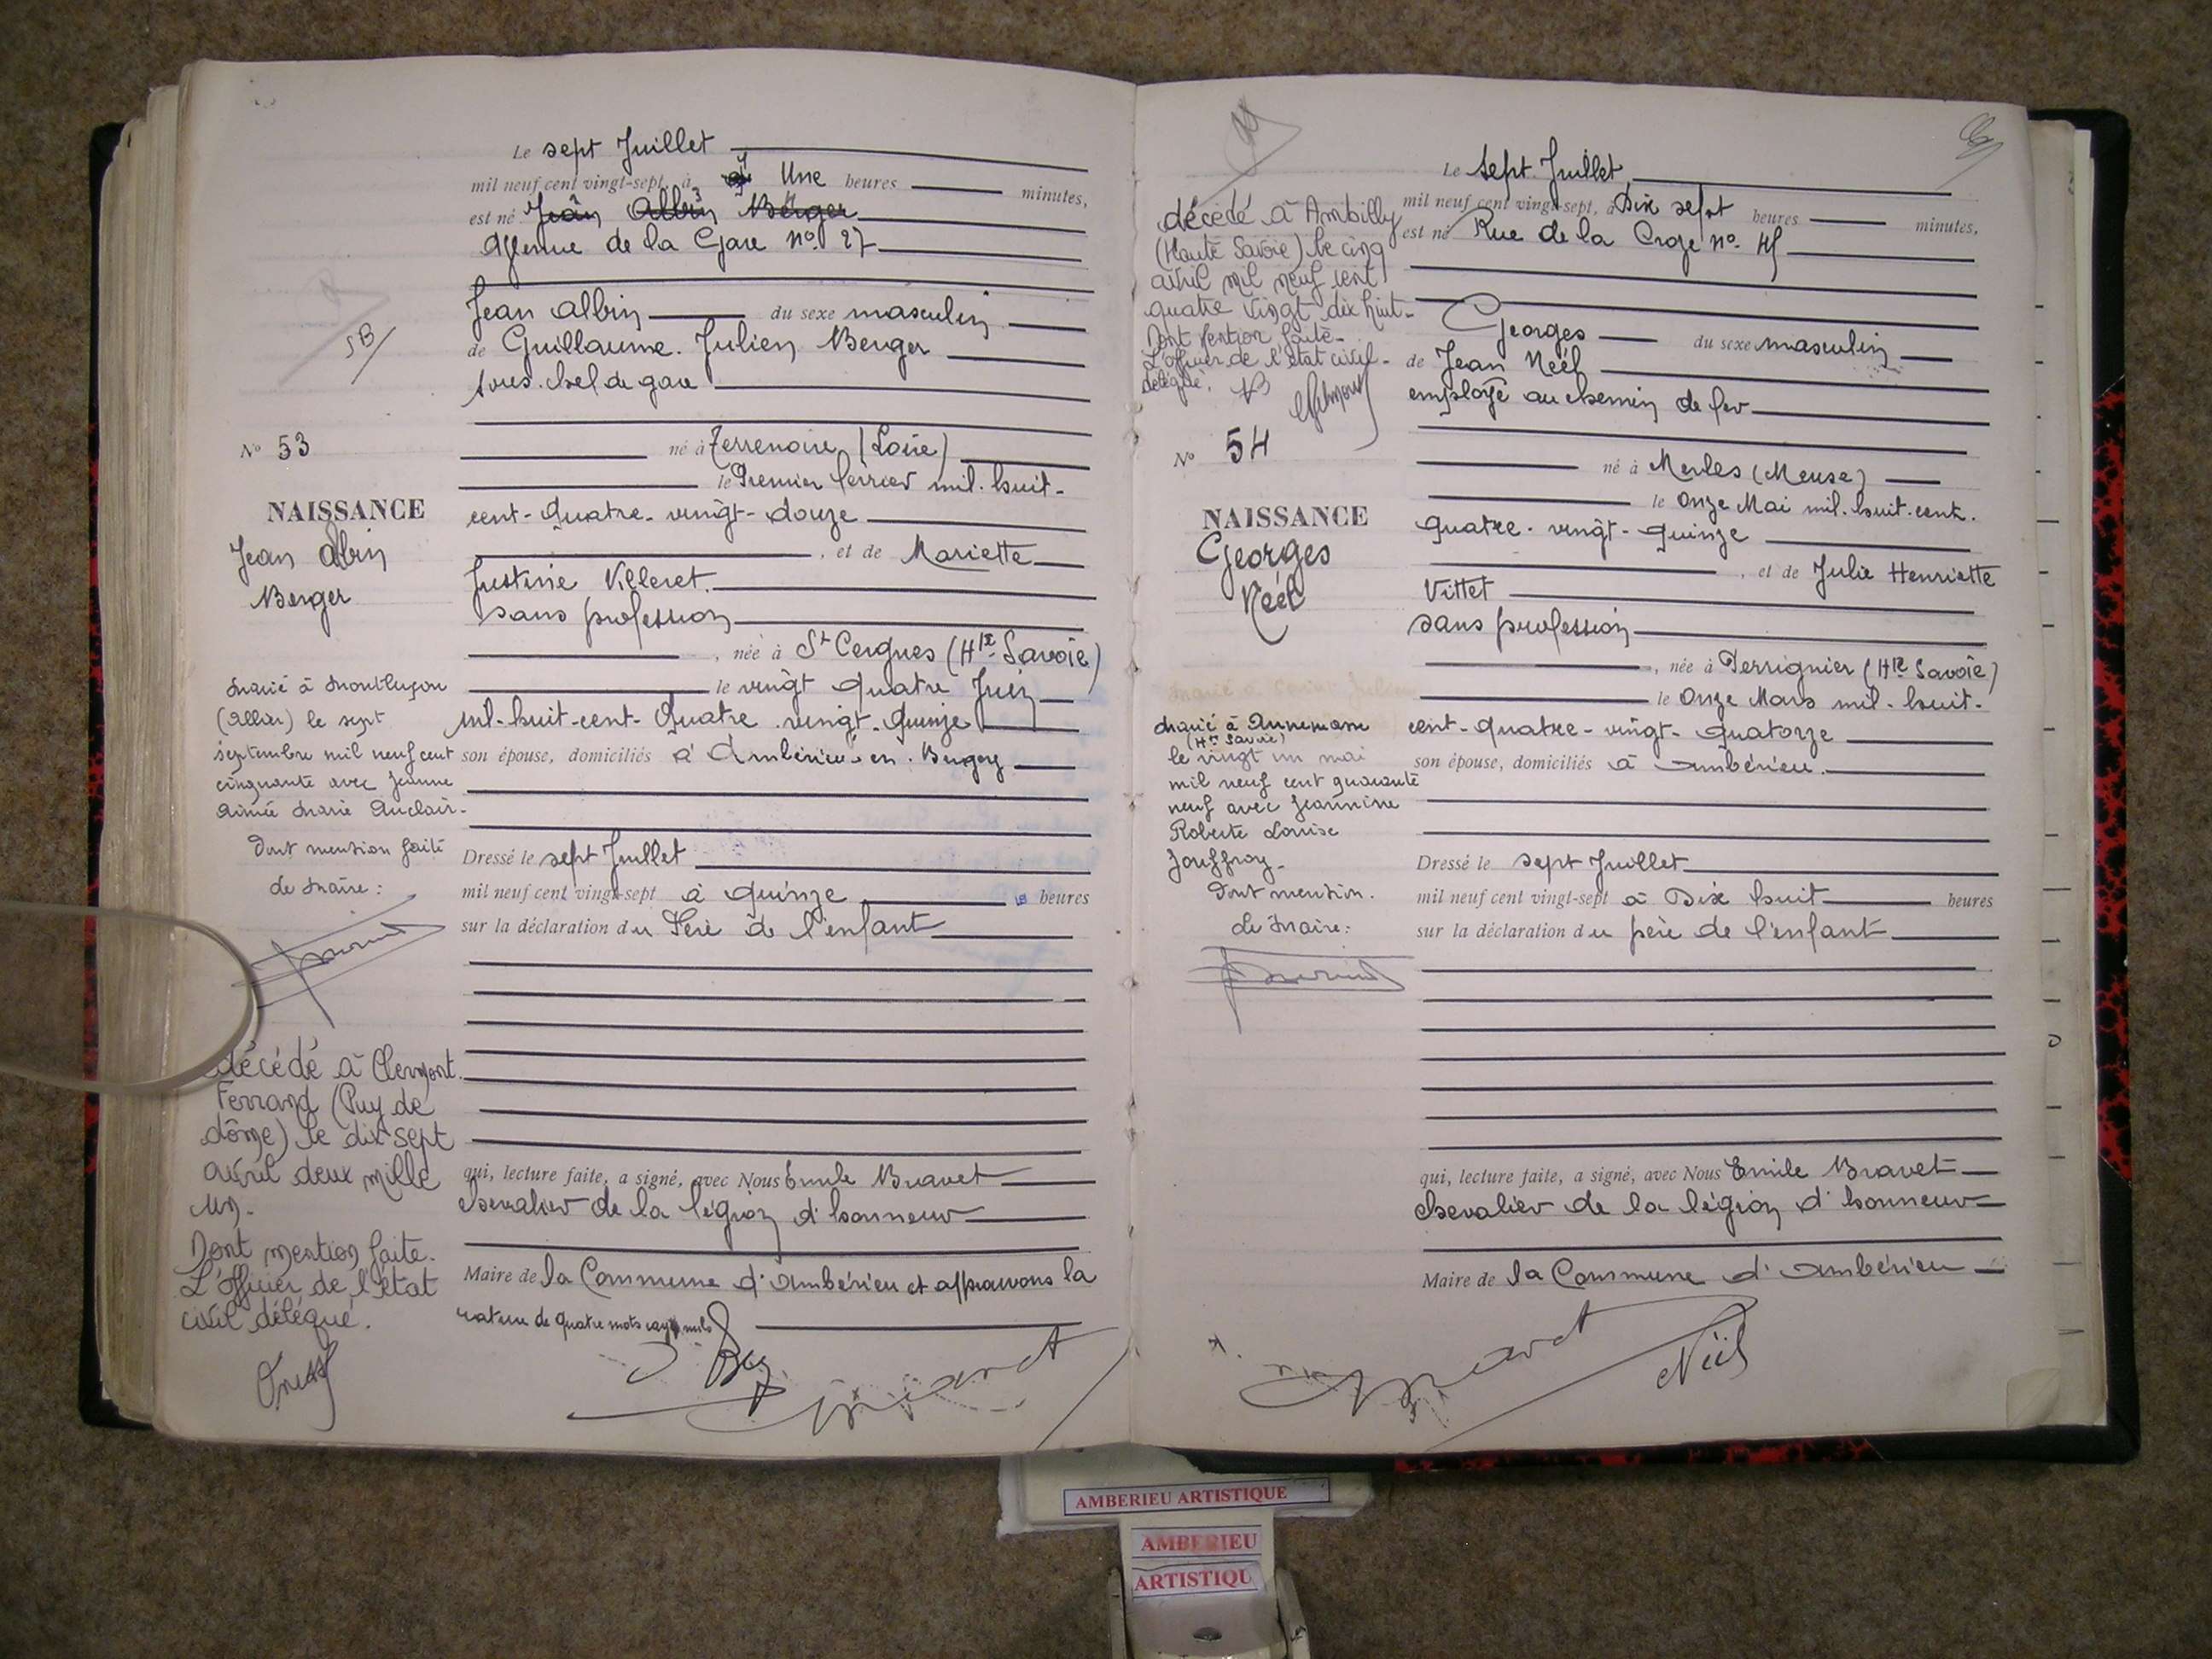 Le sept Juillet
mil neuf cent vingt-sept, à Une heures minutes,
est né Jean Albin Berger
Avenue de la Gare no. 27
Jean Albin du sexe masculin
de Guillaume. Julien Berger
sous. chef de gare
SB
No 53
NAISSANCE
Jean Albin
Berger
né à Terrenoire (Loire)
le Premier février mil. huit-
cent-quatre-vingt-douze
, et de Mariette
Justine Villeret.
sans profession
, née à St Cergues (Hte Savoie)
le vingt quatre Juin
mil-huit-cent-Quatre-vingt-Quinze
son épouse, domiciliés à Ambérieu-en-Bugey
Marié à Montluçon
(Allier) le sept
septembre mil neuf cent
cinquante avec Jeanne
Aimée Marie Auclair-
Dont mention faite
Le Maire:
Dressé le sept Juillet
mil neuf cent vingt-sept à Quinze heures
sur la déclaration du Père de l'enfant
décédé à Clermont.
Ferrand (Puy de
dôme) le dix sept
avril deux mille
un.
Dont mention faite.
L'officier de l'état
civil délégué.
qui, lecture faite, a signé, avec Nous Emile Bravet
chevalier de la légion d'honneur
Maire de la Commune d'Ambérieu et approuvons la
rature de quatre mots rayés nuls
Bravet
Le sept Juillet
mil neuf cent vingt-sept, à Dix sept heures minutes,
est né Rue de la Croze no. 45
Georges du sexe masculin
de Jean Néel
employé au chemin de fer
décédé à Ambilly
(Haute Savoie) le cinq
avril mil neuf cent
quatre vingt dix huit-
Dont mention faite-
L'officier de l'état civil-
délégué.
No 54
NAISSANCE
Georges
Néel
né à Merles (Meuse)
le Onze Mai mil. huit. cent.
quatre-vingt-quinze
, et de Julie Henriette
Vittet
sans profession
, née à Perrignier (Hte Savoie)
le Onze Mars mil-huit-
cent-quatre-vingt-quatorze
son épouse, domiciliés à Ambérieu.
Marié à Annemasse
(Hte Savoie)
le vingt un mai
mil neuf cent quarante
neuf avec Jeannine
Roberte Louise
Jouffroy-
Dont mention.
Le Maire:
Dressé le sept Juillet
mil neuf cent vingt-sept à Dix huit heures
sur la déclaration du père de l'enfant
qui, lecture faite, a signé, avec Nous Emile Bravet
chevalier de la légion d'honneur
Maire de la Commune d'Ambérieu
Bravet
Néel
AMBERIEU ARTISTIQUE
AMBERIEU
ARTISTIQU